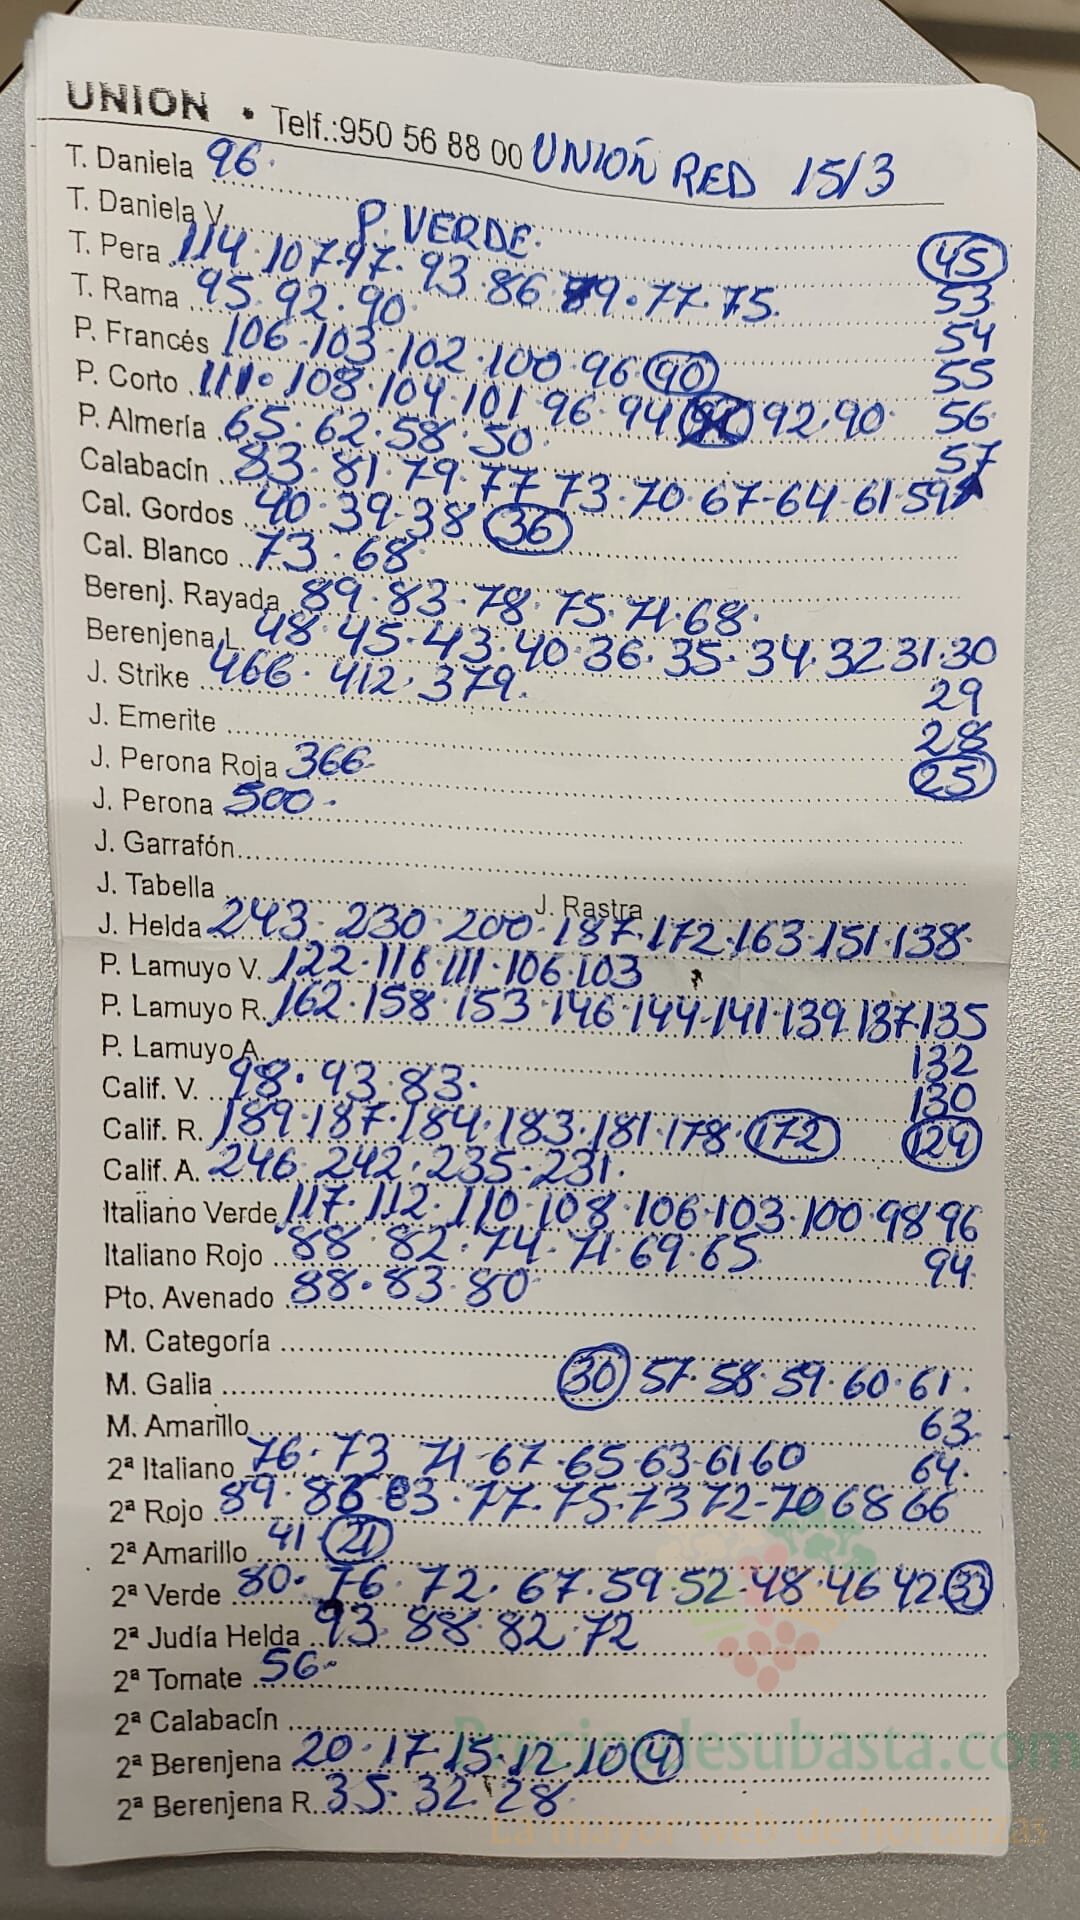 UNION • Telf.:950 56 88 00 UNION RED 15/3
T. Daniela 96.
T. Daniela V. P. VERDE. 45
T. Pera 114.107.97.93.86.79.77.75. 53
T. Rama 95.92.90 54
P. Francés 106.103.102.100.96 90 55
P. Corto 111.108.104.101.96.94 92.90. 56
P. Almería 65.62.58.50 57
Calabacín 83.81.79.77.73.70.67-64-61.59
Cal. Gordos 40.39.38 36
Cal. Blanco 73.68
Berenj. Rayada 89.83.78.75.71.68.
Berenjena L 48.45.43.40.36.35.34.32 31.30
J. Strike 466.412.379. 29
J. Emerite 28
J. Perona Roja 366. 25
J. Perona 500.
J. Garrafón
J. Tabella J. Rastra
J. Helda 243.230.200.187.172.163.151.138.
P. Lamuyo V. 122.116.111.106.103
P. Lamuyo R. 162.158.153.146.144.141.139.137.135
P. Lamuyo A. 132
Calif. V. 98.93.83. 130
Calif. R. 189.187.184.183.181.178.172 124
Calif. A. 246.242.235.231.
Italiano Verde 117.112.110.108.106.103.100.98 96
Italiano Rojo 88.82.74.71.69.65 94.
Pto. Avenado 88.83.80
M. Categoría
M. Galia 30 57.58.59.60.61.
M. Amarillo 63.
2ª Italiano 76.73 71.67.65.63.61 60 64.
2ª Rojo 89.86.83.77.75.73 72-70 68 66
2ª Amarillo 41 21
2ª Verde 80.76.72.67.59.52.48.46 42.33
2ª Judía Helda 93.88.82.72
2ª Tomate 56.
2ª Calabacín
2ª Berenjena 20.17.15.12.10 4
2ª Berenjena R. 35.32.28
Preciosdesubasta.com
La mayor web de hortalizas